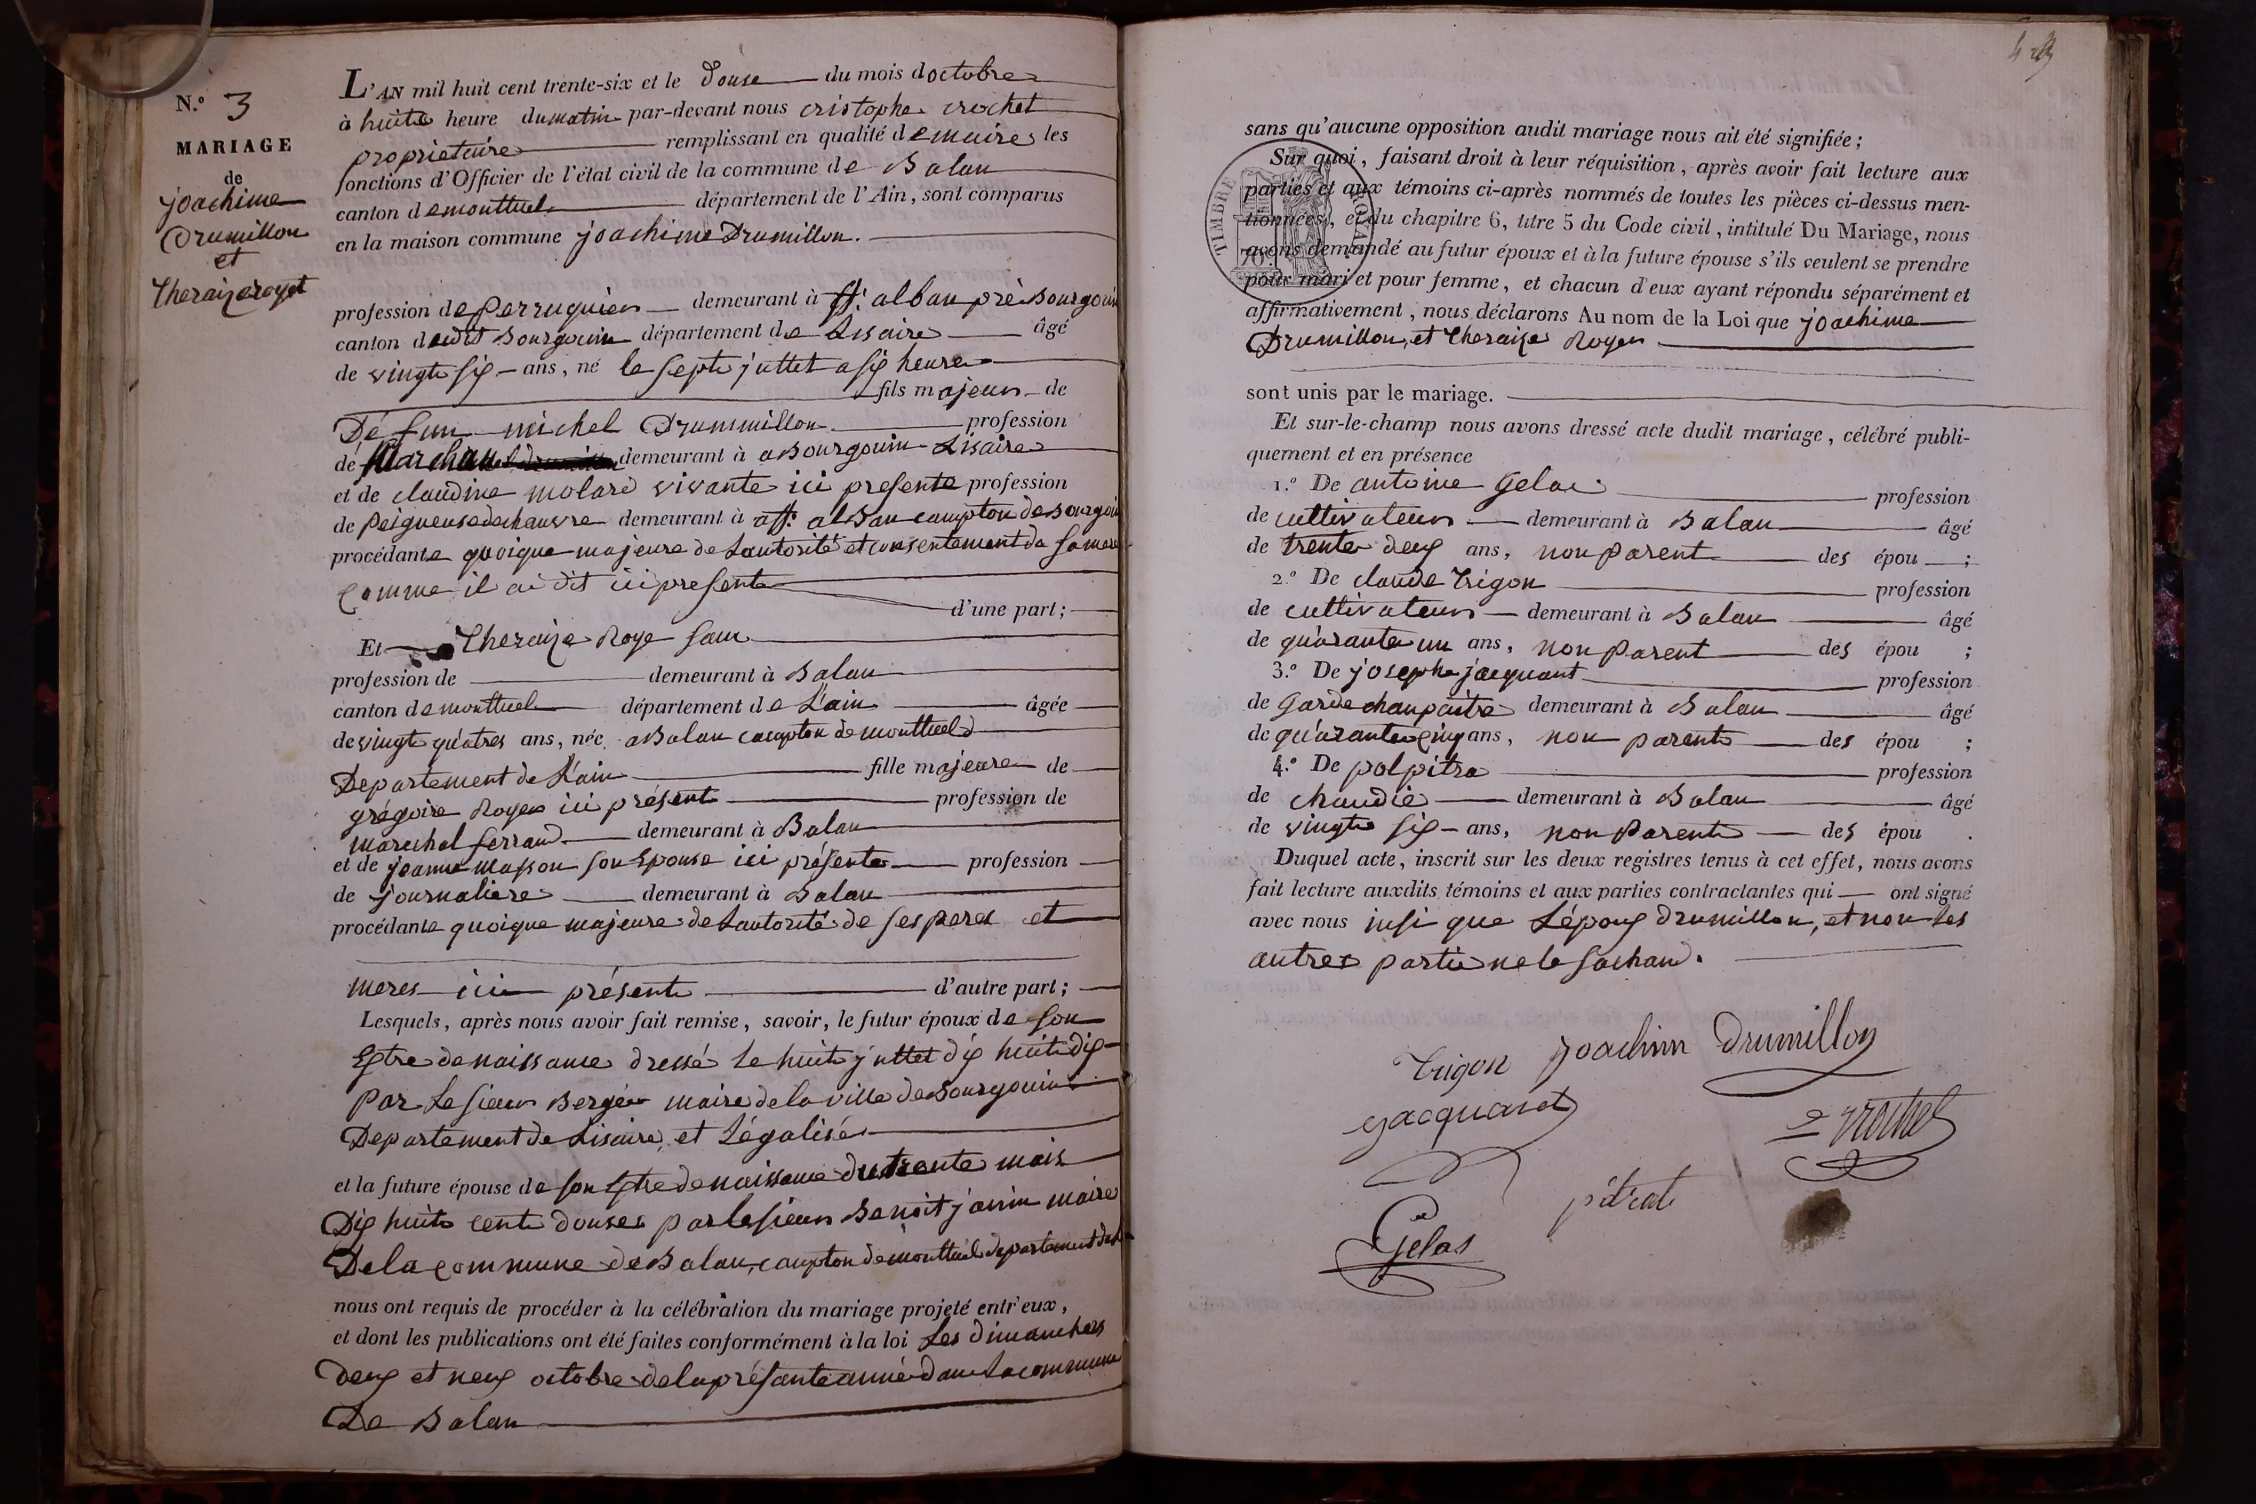 N.º 3
MARIAGE
de
joachime
Drumillon
et
Theraize royet
L'AN mil huit cent trente-six et le douse du mois doctobre
à huite heure dumatin par-devant nous cristophe crochet
proprietaire remplissant en qualité de maire les
fonctions d'Officier de l'état civil de la commune de Balan
canton de montluel département de l'Ain, sont comparus
en la maison commune joachime Drumillon.
profession de Perruquier demeurant à St. alban prè Bourgouin
canton dudit Bourgouin département de Lisaire âgé
de vingt six ans, né le septe juttet a six heure
fils majeur de
Défun michel Drummillon profession
de Marchan demeurant à aBourgouin Lisaire
et de claudine molard vivante ici presente profession
de Peigneuse de chanvre demeurant à a St. alban campton de Bourgouin
procédante quoique majeure de Lautorité et consentement de sa mere
comme il ai dit ici presente
d'une part;
Et Theraize Roye san
profession de demeurant à Balan
canton de montluel département de L'ain âgée
de vingt quatres ans, née aBalan campton de montlueld
Departement de L'ain fille majeure de
grégoire Royer ici présent profession de
marechal ferrand demeurant à Balan
et de jeanne Masson son Epouse ici présente profession
de journaliere demeurant à Balan
procédante quoique majeure de Lautorité de ses peres et
meres ici présente d'autre part;
Lesquels, après nous avoir fait remise, savoir, le futur époux de son
Extre de naissance dressé le huit juttet dix huite dix
par Le sieur Bergér maire de la ville de Bourgouin
Departement de Lisaire, et Légalisé
et la future épouse de son Extre de naissance du trente mais
Dix huite cente douses par le sieur Benoit janin maire
De la commune de Balan, campton de montluel departement de L
nous ont requis de procéder à la célébration du mariage projeté entr'eux,
et dont les publications ont été faites conformément à la loi Les dimanches
deux et neuf octobre de la présante année dans La commune
De Balan
sans qu'aucune opposition audit mariage nous ait été signifiée;
Sur quoi, faisant droit à leur réquisition, après avoir fait lecture aux
parties et aux témoins ci-après nommés de toutes les pièces ci-dessus men-
tionnées, et du chapitre 6, titre 5 du Code civil, intitulé Du Mariage, nous
avons demandé au futur époux et à la future épouse s'ils veulent se prendre
pour mari et pour femme, et chacun d'eux ayant répondu séparément et
affirmativement, nous déclarons Au nom de la Loi que joachime
Drumillon, et Theraize Royer
TIMBRE ROYAL
sont unis par le mariage.
Et sur-le-champ nous avons dressé acte dudit mariage, célébré publi-
quement et en présence
1.º De antoine Gelas profession
de cultivateur demeurant à Balan âgé
de trente deux ans, non parent des épou ;
2.º De claude Trigon profession
de cultivateur demeurant à Balan âgé
de quarante un ans, non parent des épou ;
3.º De josephe jacquant profession
de Garde chanpaitre demeurant à Balan âgé
de quarante cinq ans, non parente des épou ;
4.º De polpitra profession
de chaudié demeurant à Balan âgé
de vingte six ans, non parente des épou .
Duquel acte, inscrit sur les deux registres tenus à cet effet, nous avons
fait lecture auxdits témoins et aux parties contractantes qui ont signé
avec nous insi que L'époux Drumillon, et non les
autres partie ne le sachand.
Trigon joachim Drumillon
jacquand
Crochet
pitrat
Gelas